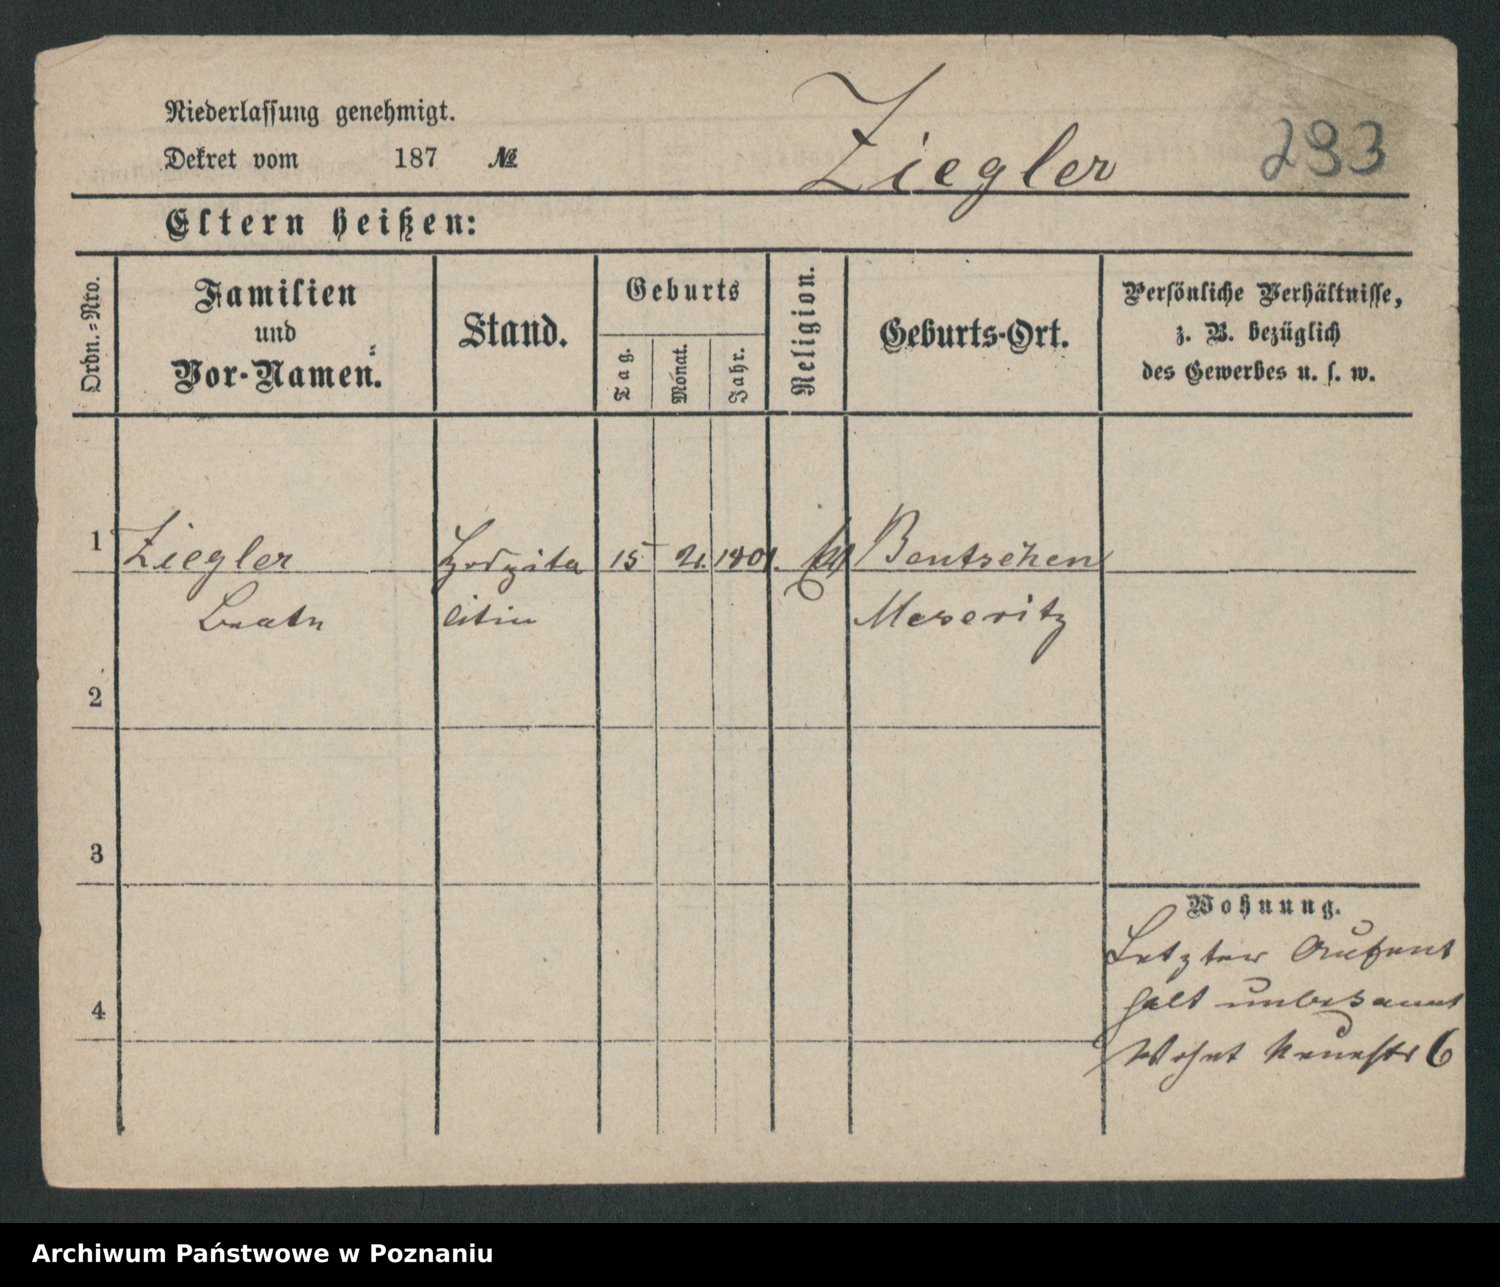 Niederlassung genehmigt.
Dekret vom 187 №
Ziegler
293
Eltern heißen:
Ordn.-Nro.
Familien
und
Vor-Namen.
Stand.
Geburts
Tag.
Monat.
Jahr.
Religion.
Geburts-Ort.
Persönliche Verhältnisse,
z. B. bezüglich
des Gewerbes u. s. w.
1 Ziegler Hospita 15 2. 1801. Bentschen
Beate litin Meseritz
2
3
Wohnung.
Letzter Aufent
halt unbekannt
4
Wohnt Neuestr 6
Archiwum Państwowe w Poznaniu